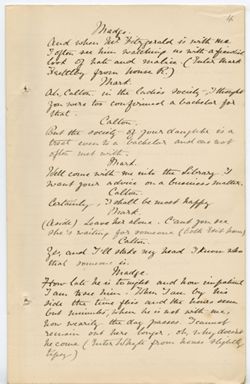 4
Madge.
And when Mr Fitzgerald is with me
I often see him watching us with a fiendish
look of hate and malice. (Enter Mark
Frettlby from house R.)
Mark.
Ah, Calton, in the ladies society, I thought
you were too confirmed a bachelor for
that.
Calton.
But the society of your daughter is a
treat even to a bachelor and one not
often met with.
Mark.
Well come with me into the library. I
want your advice on a business matter.
Calton
Certainly, I shall be most happy
Mark
(Aside) Leave her alone. Cant you see
she's waiting for someone (both exit from)
Calton.
Yes and I'll stake my head I know who
that someone is.
Madge.
How late he is to night and how impatient
I am to see him. When I am by his
side the time flies and the hours seem
but minutes, when he is not with me,
how wearily the day passes. I cannot
remain out here longer, oh, why doesn't
he come (Enter Whyte from house slightly
tipsy)